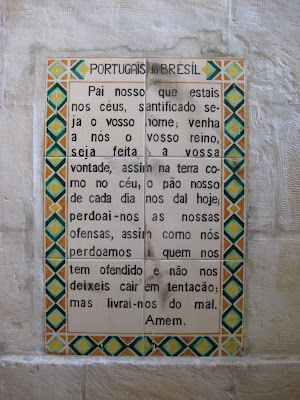 PORTUGAIS do BRÉSIL
Pai nosso que estais
nos céus, santificado se-
ja o vosso nome; venha
a nós o vosso reino,
seja feita a vossa
vontade, assim na terra co-
mo no céu, o pão nosso
de cada dia nos dai hoje;
perdoai-nos as nossas
ofensas, assim como nós
perdoamos a quem nos
tem ofendido e não nos
deixeis cair em tentação;
mas livrai-nos do mal.
Amem.